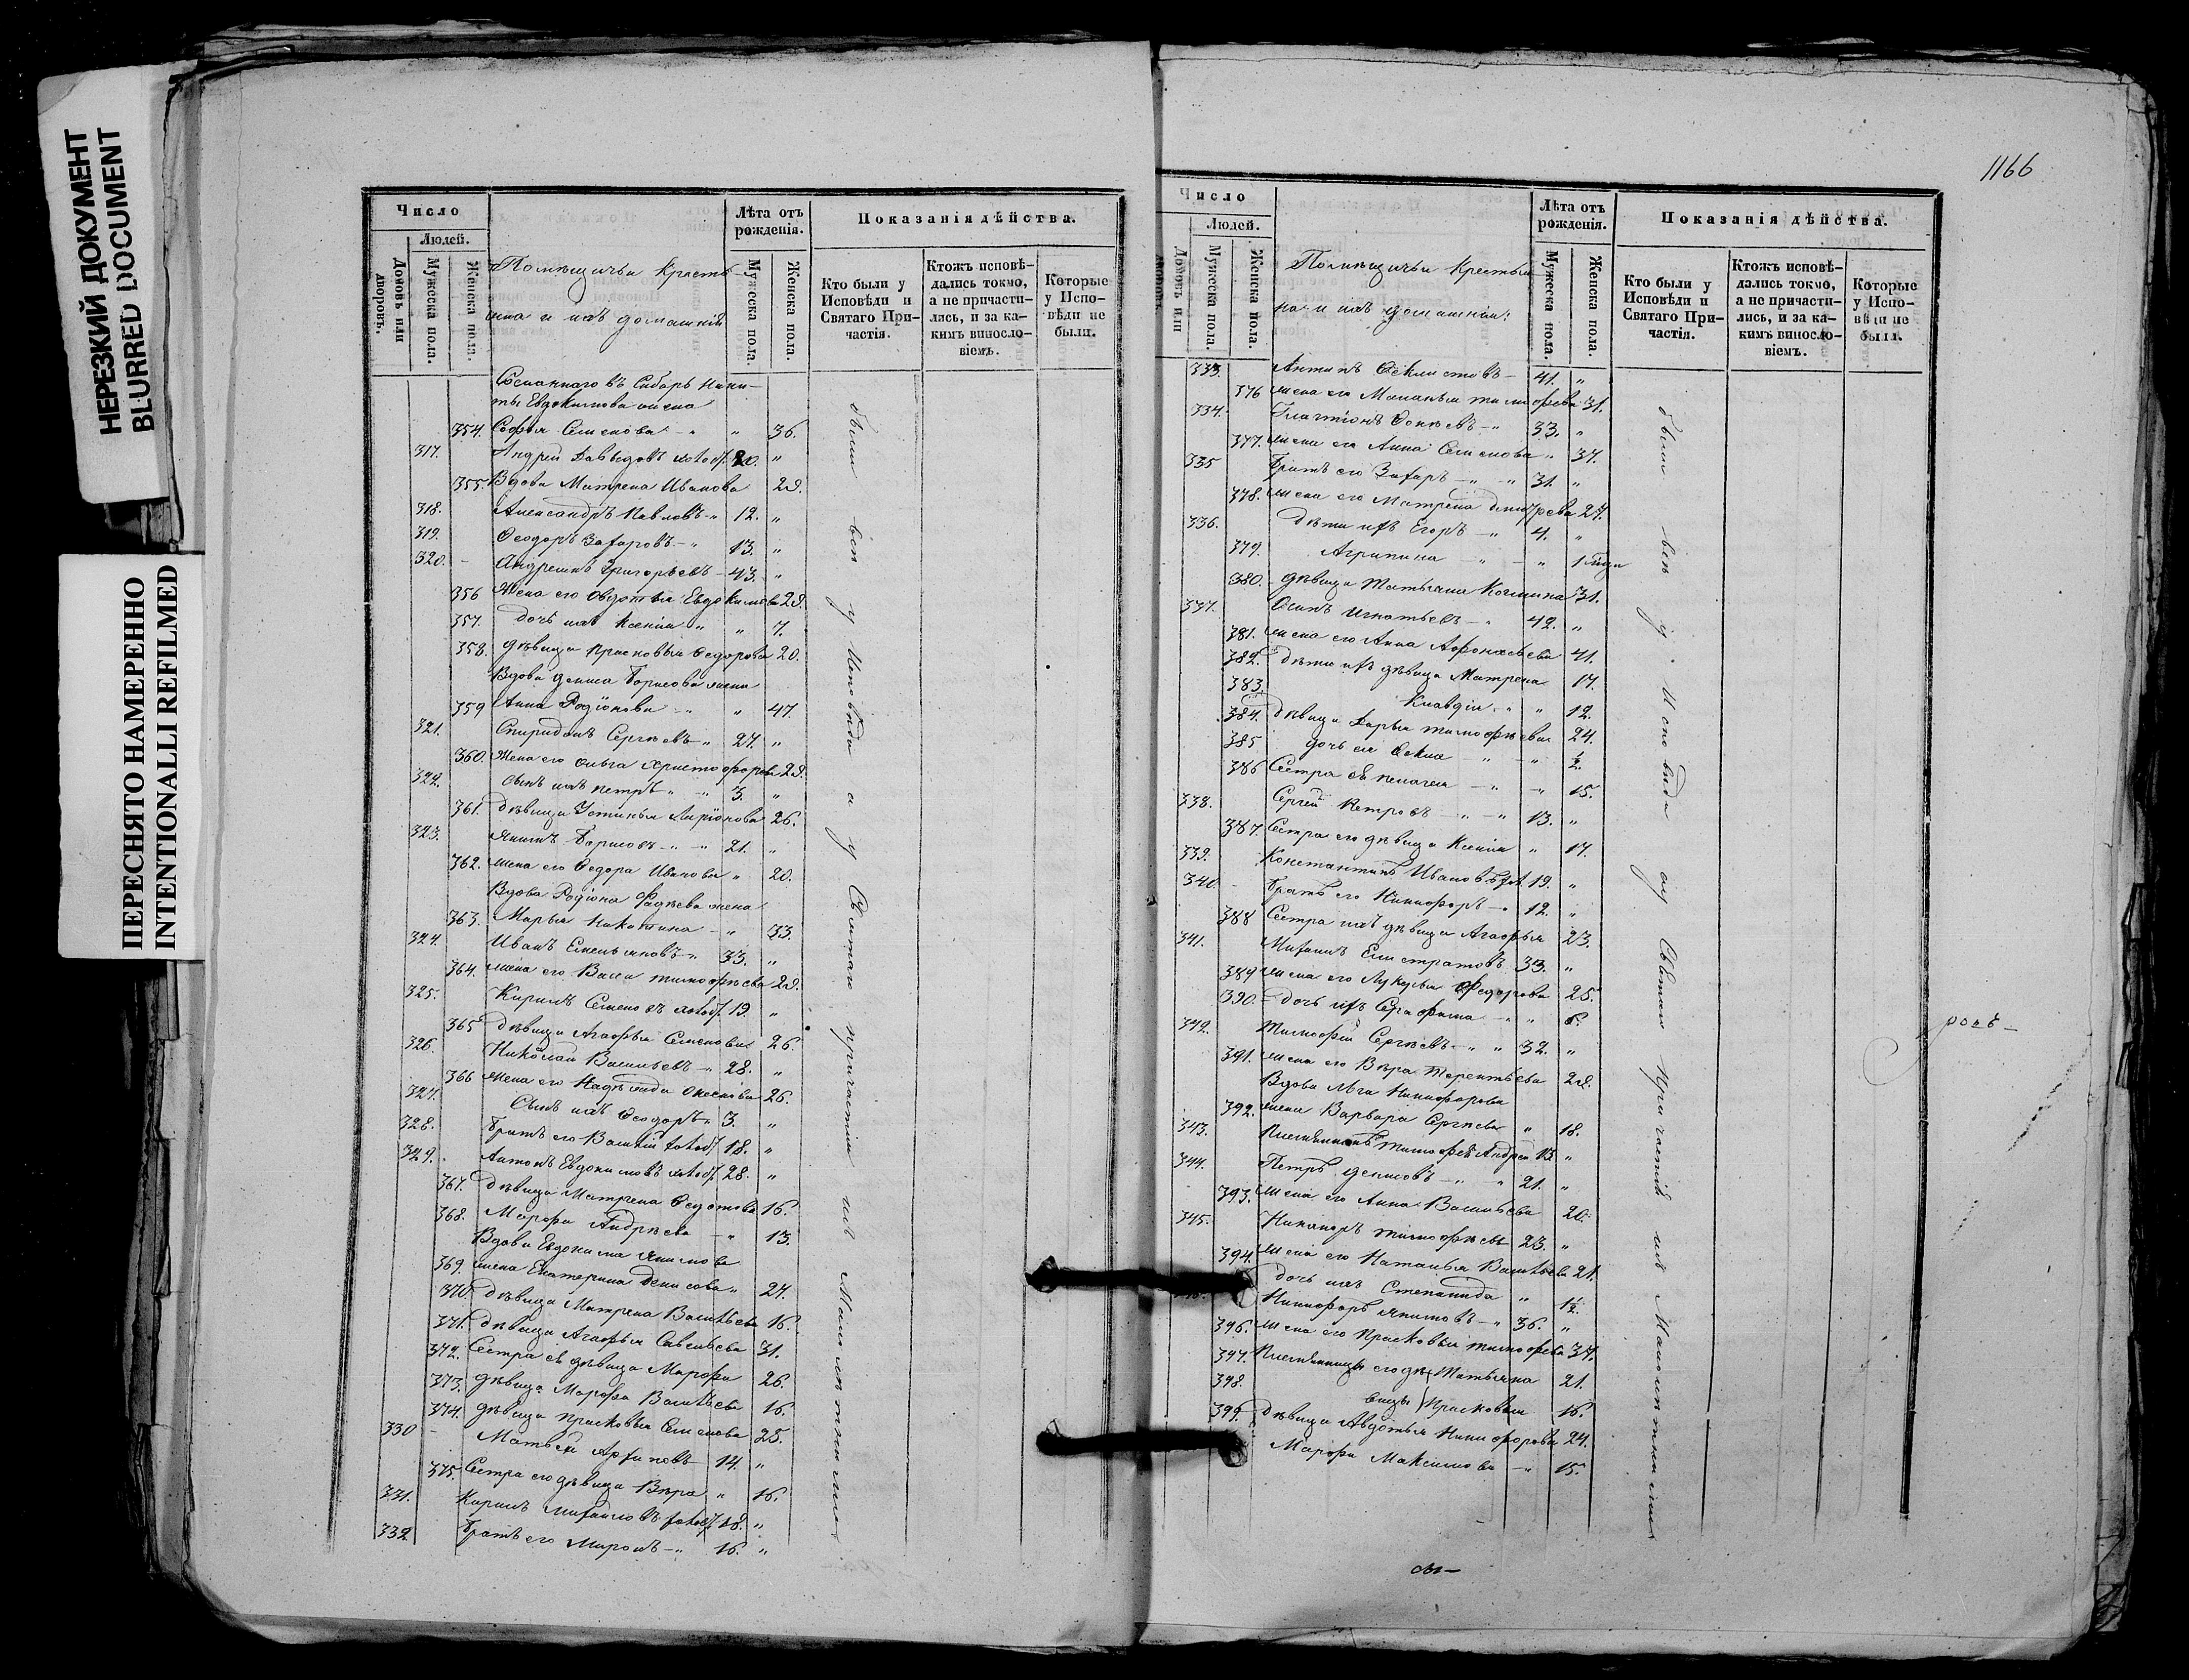 НЕРЕЗКИЙ ДОКУМЕНТ
BLURRED DOCUMENT
ПЕРЕСНЯТО НАМЕРЕННО
INTENTIONALLI REFILMED
Число
Людей.
Домовъ или дворовъ.
Мужеска пола.
Женска пола.
Помѣщичьи Крестья-
не и ихъ домашнiи
Лѣта отъ рожденія.
Мужеска пола.
Женска пола.
Показанія дѣйства.
Кто были у Исповѣди и Святаго Причастія.
Ктожъ исповѣдались токмо, а не причастились, и за какимъ винословіемъ.
Которые у Исповѣди не были.
Сосланнаго въ Сибирь Ники-
ты Евдокимова жена
354. Софья Семенова - " " 36.
317. Андрей Давыдовъ холост. 20. "
355. Вдова Матрена Иванова 29.
318. Александръ Павловъ - " 12. "
319. Ѳеодоръ Захаровъ - " 13. "
320. - Григорьевъ - 43. "
356 Жена его Овдотья Евдокимова 29.
357. дочь ихъ Ксенія " " 7.
358. дѣвица Прасковья Ѳедорова 20.
Вдова Дениса Борисова жена
359 Анна Родіонова - " " 47.
321. Спиридонъ Сергѣевъ - " 27. "
360. Жена его Ольга Христофорова 29.
322. Сынъ ихъ Петръ - " - " 3. "
361. дѣвица Устинья Ларіонова 26.
323. Якимъ Борисовъ - " - " 21. "
362. жена его Ѳедора Иванова " 20.
Вдова Родіона Фадѣева жена
363. Марья Никитина - " 33.
324. Иванъ Емельяновъ - " 33. "
364. жена его Васса Тимофѣева 29.
325. Кирилъ Семеновъ холост. 19. "
365 дѣвица Агафья Семенова 26.
326. Николай Васильевъ - " 28. "
366 Жена его Надѣжда 26.
327. Сынъ ихъ Ѳеодоръ " 3. "
328. братъ его Василій холост. 18. "
329. Антонъ Евдокимовъ холост. 28. "
367. дѣвица Матрена Ѳедотова 16.
368. Марфа Андрѣева - " 13.
Вдова Евдокима Якимова
369. жена Екатерина Денисова " 27.
370. дѣвица Матрена Васильева 16.
371. дѣвица Агафья Савельева 31.
372. Сестра ея дѣвица Марфа 26.
373. дѣвица Марфа Васильева 16.
374. дѣвица Прасковья Семенова 25.
330 - Матвей Архиповъ - 14. "
375. Сестра его дѣвица Вѣра " 16.
331. Кирилъ Михайловъ холост. 18. "
332 братъ его Миронъ - " 16. "
были всѣ у Исповѣди а у Святаго причастія изъ Малолѣтними
1166
Число
Людей.
Домовъ или дворовъ.
Мужеска пола.
Женска пола.
Помѣщичьи Крестья
не и ихъ домашнiи:
Лѣта отъ рожденія.
Мужеска пола.
Женска пола.
Показанія дѣйства.
Кто были у Исповѣди и Святаго Причастія.
Ктожъ исповѣдались токмо, а не причастились, и за какимъ винословіемъ.
Которые у Исповѣди не были.
333. Антипъ Ѳеклистовъ - 41. "
376 жена его Маланья Тимофеева 31.
334. Платіонъ Фокѣевъ - " 33. "
377. жена его Анна Семенова " 37.
335 братъ его Захаръ - " - " 31. "
378. жена его Матрена 27.
336. дѣти ихъ Егоръ - " 4. "
379. Агрипина - " - " 1
380. дѣвица Татьяна Козмина 31.
337. Осипъ Игнатьевъ - " 42. "
381. жена его Анна Афонасьева 41.
382. дѣти ихъ дѣвица Матрена 17.
383. Клавдія - " " 12.
384. дѣвица Дарья Тимофѣева 24.
385 дочь ея Ѳекла - " - " ½.
386 Сестра ея Пелагея - " - " 15.
338. Сергей Петровъ - " - " 13. "
387. Сестра его дѣвица Ксенія " 17.
339. Константинъ Ивановъ 19. "
340. - братъ его Никифоръ - " 12. "
388 Сестра ихъ дѣвица Агафья 23.
341. Михаилъ Елистратовъ 33. "
389 жена его Лукерья Федорова 25.
390. дочь ихъ Серафима - " " 6.
342. Тимофей Сергѣевъ - " " 32. "
391. жена его Вѣра Терентьева 29.
Вдова Льва Никифорова
392. жена Варвара Сергѣева " 18.
343. Племянникъ Тимофей 13 "
344. Петръ Денисовъ - " - " 21. "
393. жена его Анна Васильева 20.
345. Никаноръ Тимофѣевъ 23. "
394. жена его Наталья Васильева 21.
дочь ихъ Степанида " 1½.
Никифоръ Якимовъ - " 36. "
396. жена его Прасковья Тимофеева 37.
397. Племянницы его дѣ- Татьяна 21.
398. вицы Прасковья 16.
399. дѣвица Авдотья Никифорова 24.
Марфа Максимова - " 15.
были всѣ у Исповѣди а у Святаго Причастія изъ Малолѣтними